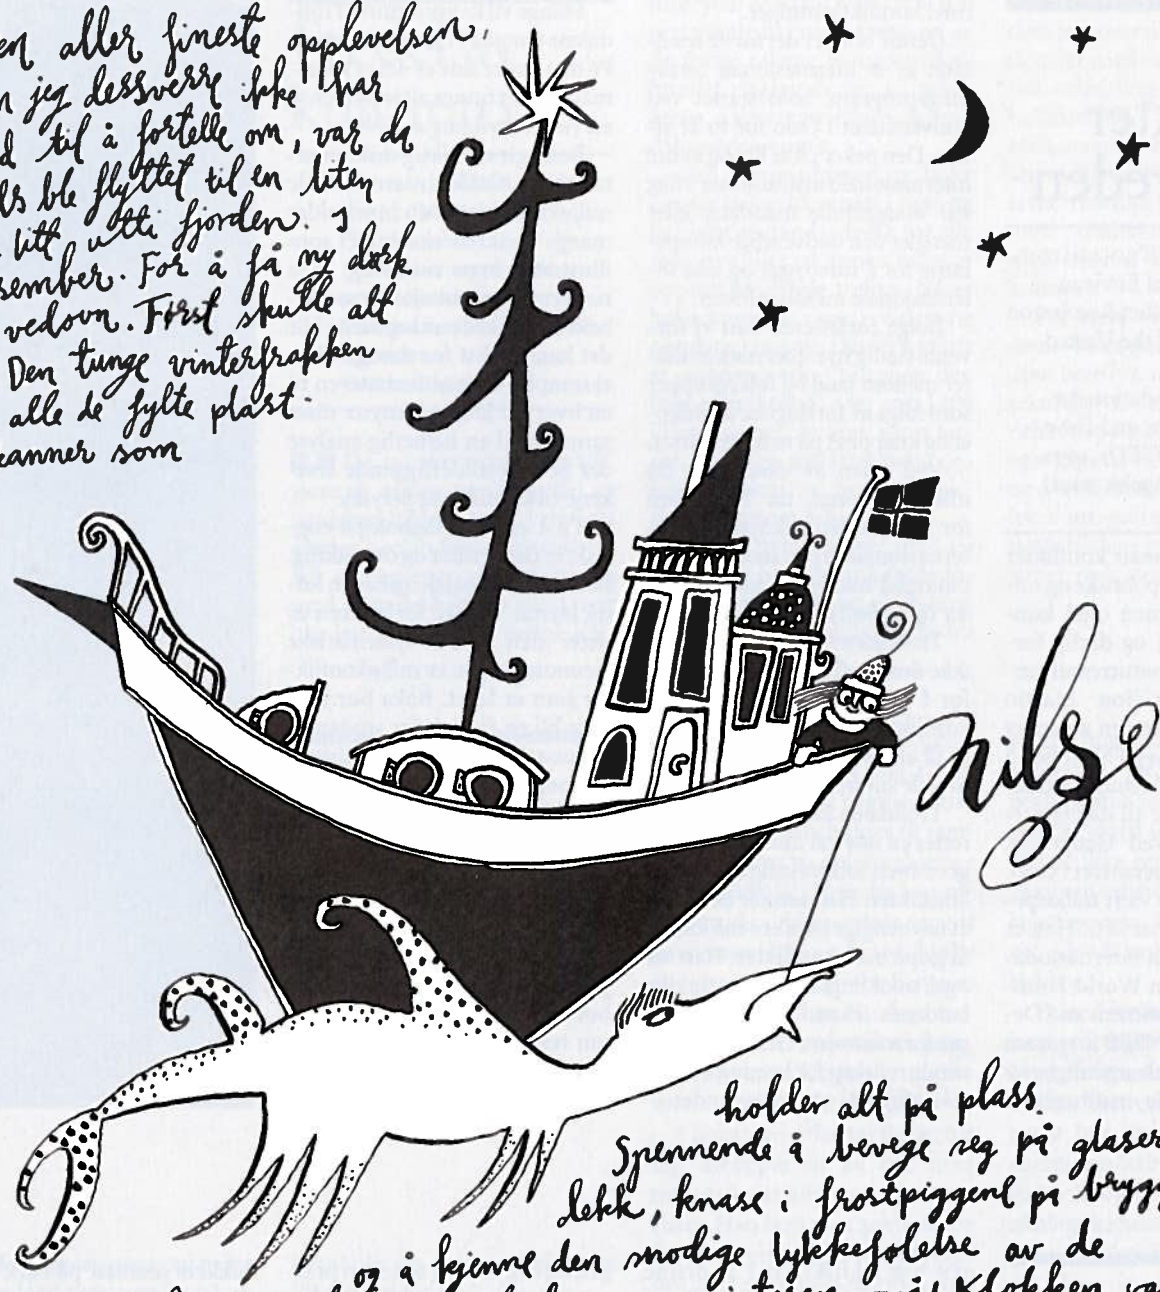 en aller fineste opplevelsen,
n jeg dessverre ikke har
d til å fortelle om, var da
ls ble flyttet til en liten
litt utti fjorden. I
sember. For å få ny dørk
vedovn. Først skulle alt
Den tunge vinterfrakken
alle de fylte plast-
kanner som
nilse
holder alt på plass.
Spennende å bevege seg på glaser
dekk, knase i frostpiggene på brygg
og å kjenne den snodige lykkefølelse av de
Klokken va